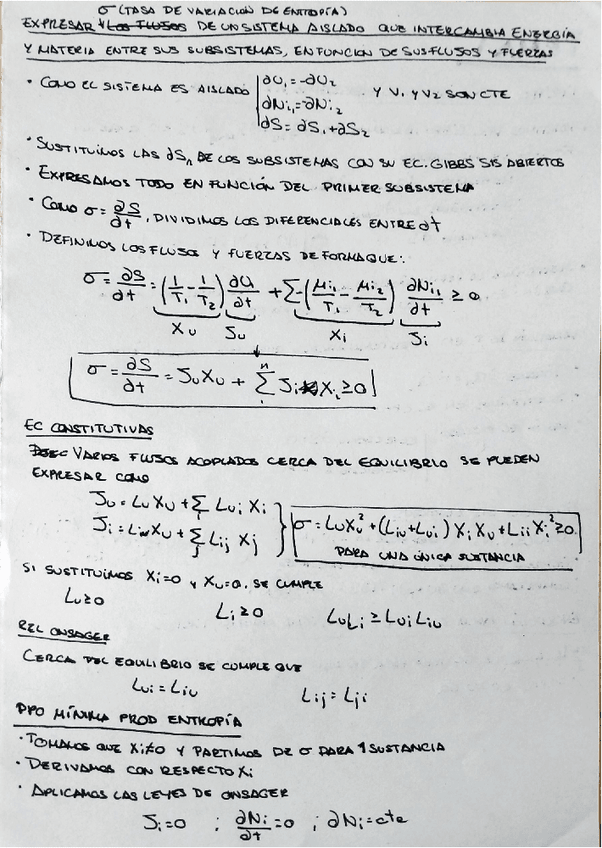 σ (TASA DE VARIACIÓN DE ENTROPÍA)
EXPRESAR LOS FLUJOS DE UN SISTEMA AISLADO QUE INTERCAMBIA ENERGÍA
Y MATERIA ENTRE SUS SUBSISTEMAS, EN FUNCION DE SUS FLUJOS Y FUERZAS
· COMO EL SISTEMA ES AISLADO | ∂U₁=-∂U₂
∂Ni₁=-∂Ni₂ Y V₁ Y V₂ SON CTE
∂S=∂S₁+∂S₂
· SUSTITUIMOS LAS ∂Sₙ DE LOS SUBSISTEMAS CON SU EC. GIBBS SIS ABIERTOS
· EXPRESAMOS TODO EN FUNCIÓN DEL PRIMER SUBSISTEMA
· COMO σ=∂S/∂t, DIVIDIMOS LOS DIFERENCIALES ENTRE ∂t
· DEFINIMOS LOS FLUJOS Y FUERZAS DE FORMA QUE:
σ=∂S/∂t=(1/T₁-1/T₂)∂U/∂t+∑-(μi₁/T₁-μi₂/T₂)∂Ni₁/∂t≥0
Xu Ju Xi Ji
σ=∂S/∂t=JuXu+∑ⁿJiXi≥0
EC CONSTITUTIVAS
VARIOS FLUJOS ACOPLADOS CERCA DEL EQUILIBRIO SE PUEDEN
EXPRESAR COMO
Ju=LuXu+∑Lui Xi
Ji=LiuXu+∑Lij Xj } σ=LuXu²+(Liu+Lui)XiXu+LiiXi²≥0
PARA UNA ÚNICA SUSTANCIA
SI SUSTITUIMOS Xi=0 Y Xu=0, SE CUMPLE
Lu≥0 Li≥0 LuLi≥LuiLiu
REL ONSAGER
CERCA DEL EQUILIBRIO SE CUMPLE QUE
Lui=Liu Lij=Lji
PPO MÍNIMA PROD ENTROPÍA
· TOMAMOS QUE Xi≠0 Y PARTIMOS DE σ PARA 1 SUSTANCIA
· DERIVAMOS CON RESPECTO Xi
· APLICAMOS LAS LEYES DE ONSAGER
Ji=0 ; ∂Ni/∂t=0 ; ∂Ni=cte